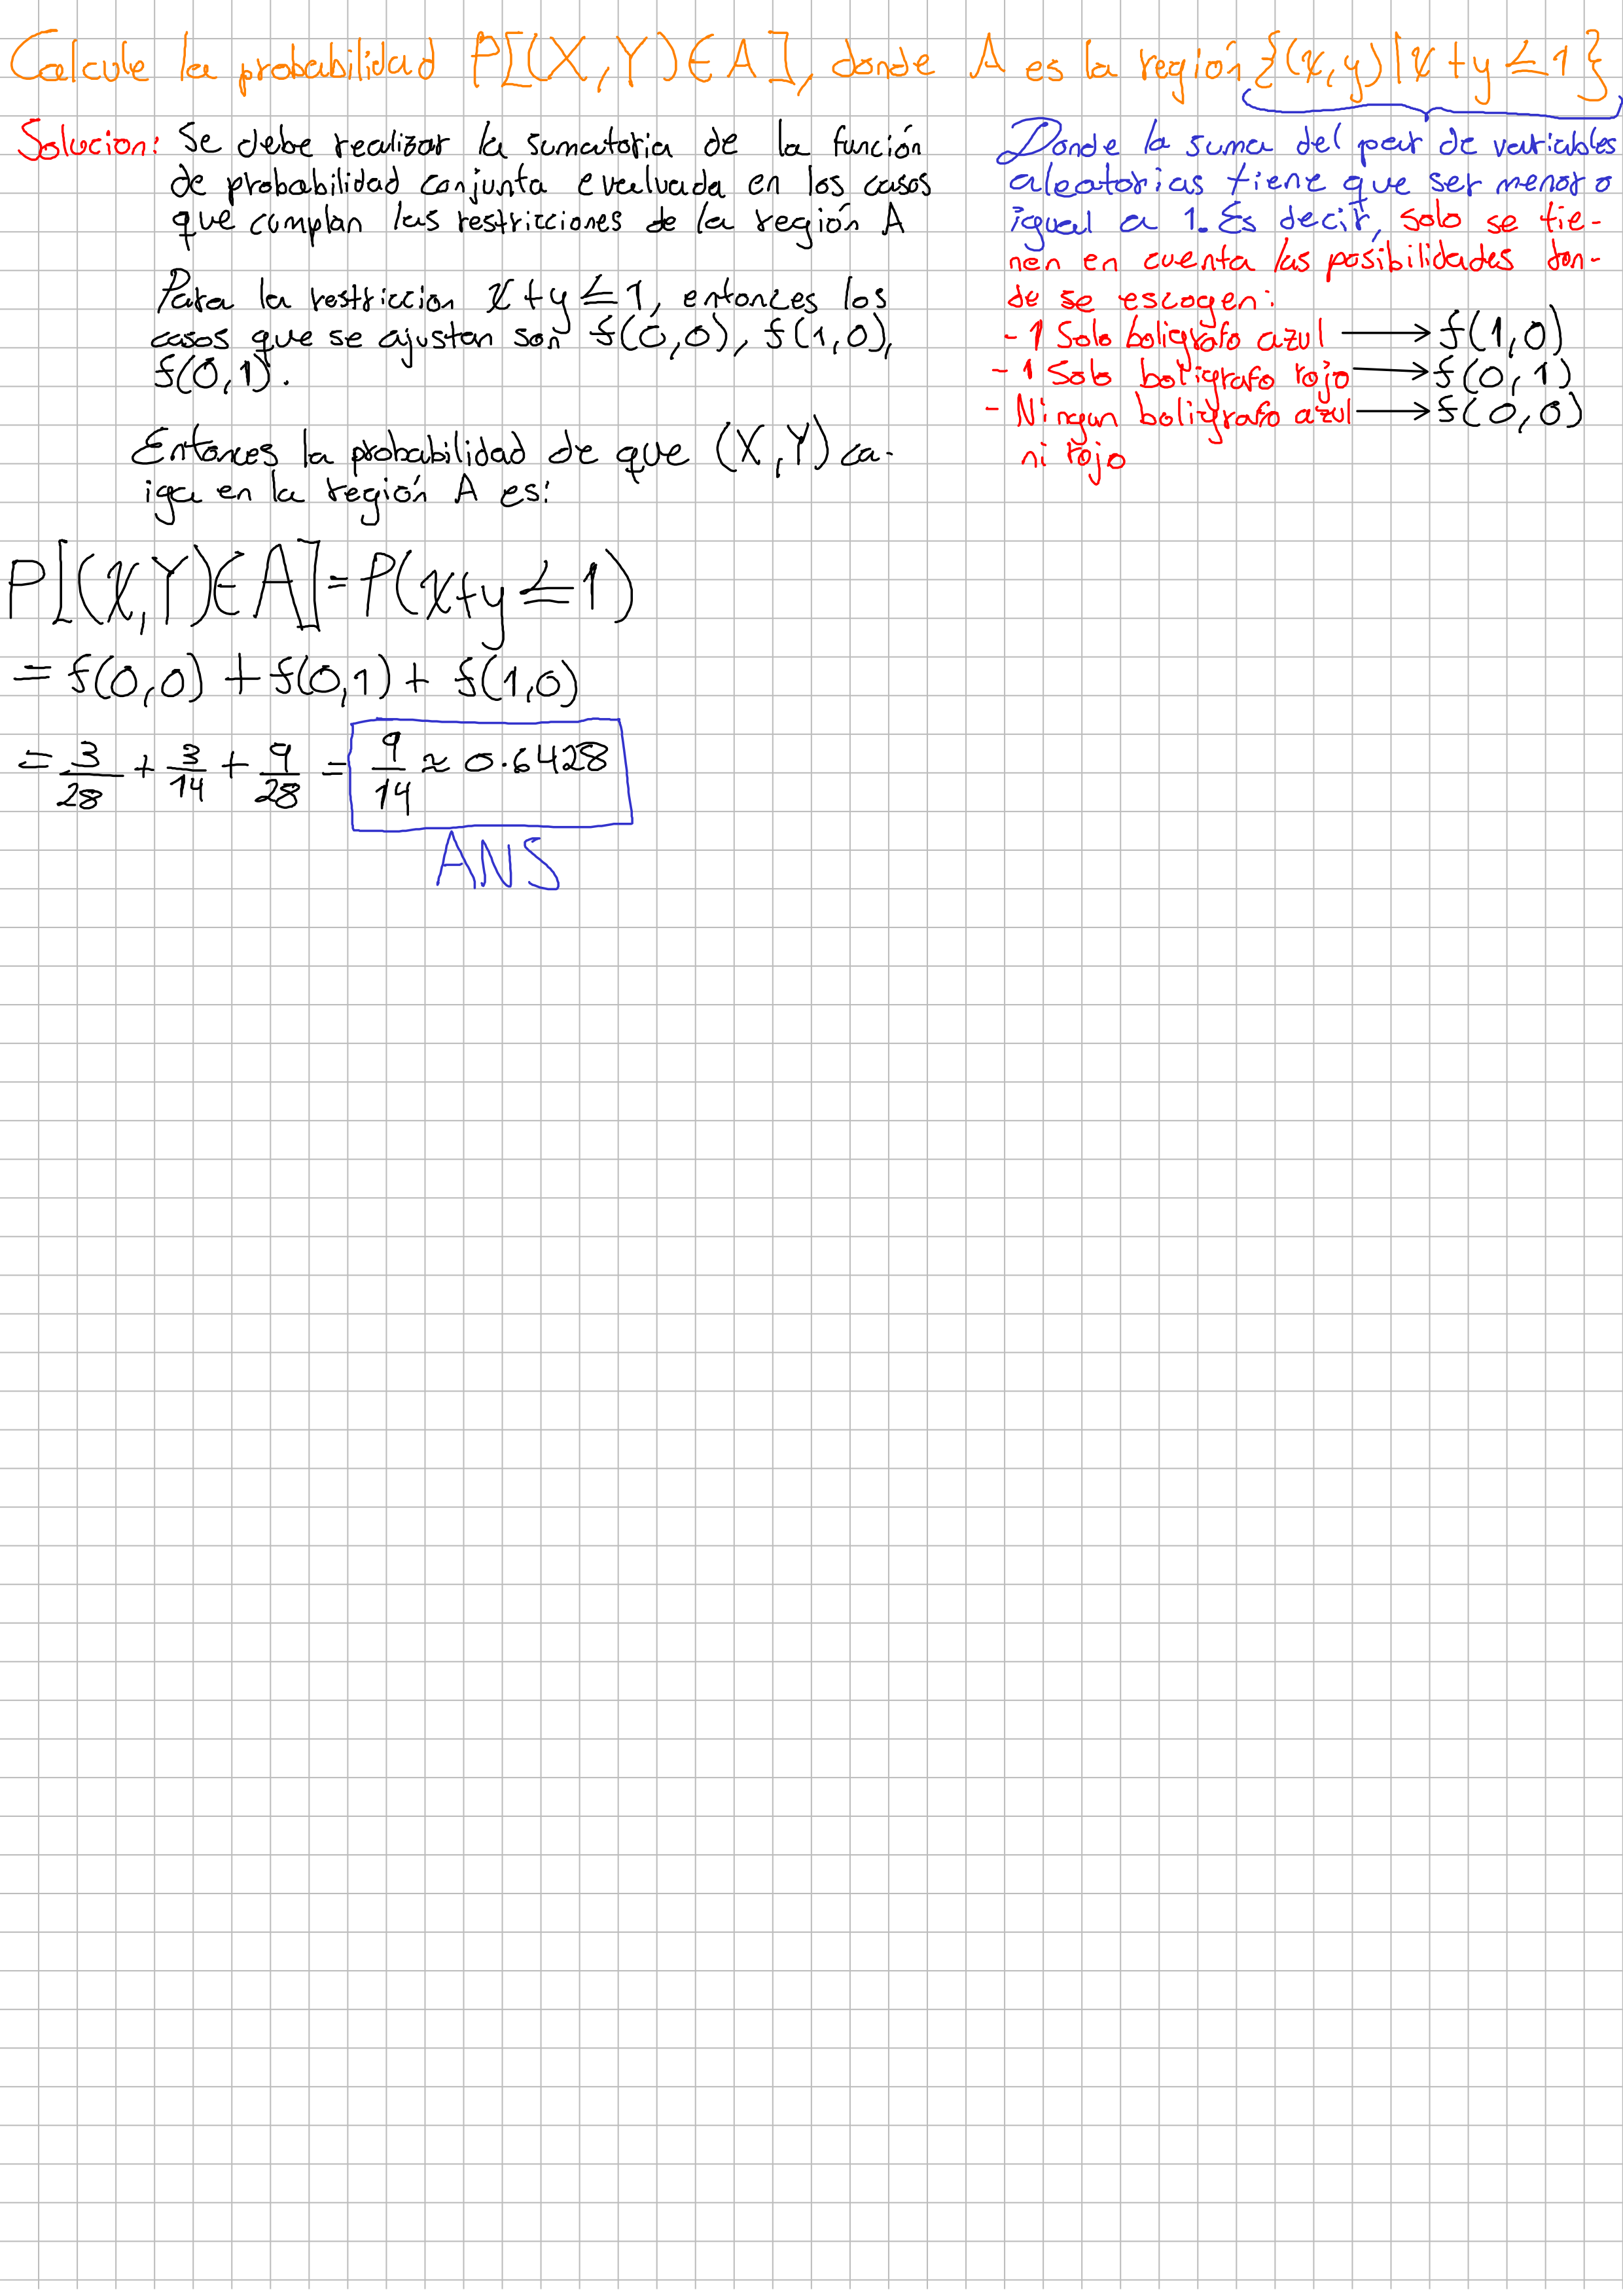 Calcule la probabilidad P[(X,Y)∈A], donde A es la región {(x,y)|x+y≤1}
Solucion: Se debe realizar la sumatoria de la función
de probabilidad conjunta evaluada en los casos
que cumplan las restricciones de la región A
Para la restriccion x+y≤1, entonces los
casos que se ajustan son f(0,0), f(1,0),
f(0,1).
Entonces la probabilidad de que (X,Y) ca-
iga en la región A es:
Donde la suma del par de variables
aleatorias tiene que ser menor o
igual a 1. Es decir, solo se tie-
nen en cuenta las posibilidades don-
de se escogen:
- 1 Solo boligrafo azul → f(1,0)
- 1 Solo boligrafo rojo → f(0,1)
- Ningun boligrafo azul → f(0,0)
ni rojo
P[(X,Y)∈A]=P(x+y≤1)
= f(0,0) + f(0,1) + f(1,0)
= 3/28 + 3/14 + 9/28 = 9/14 ≈ 0.6428
ANS